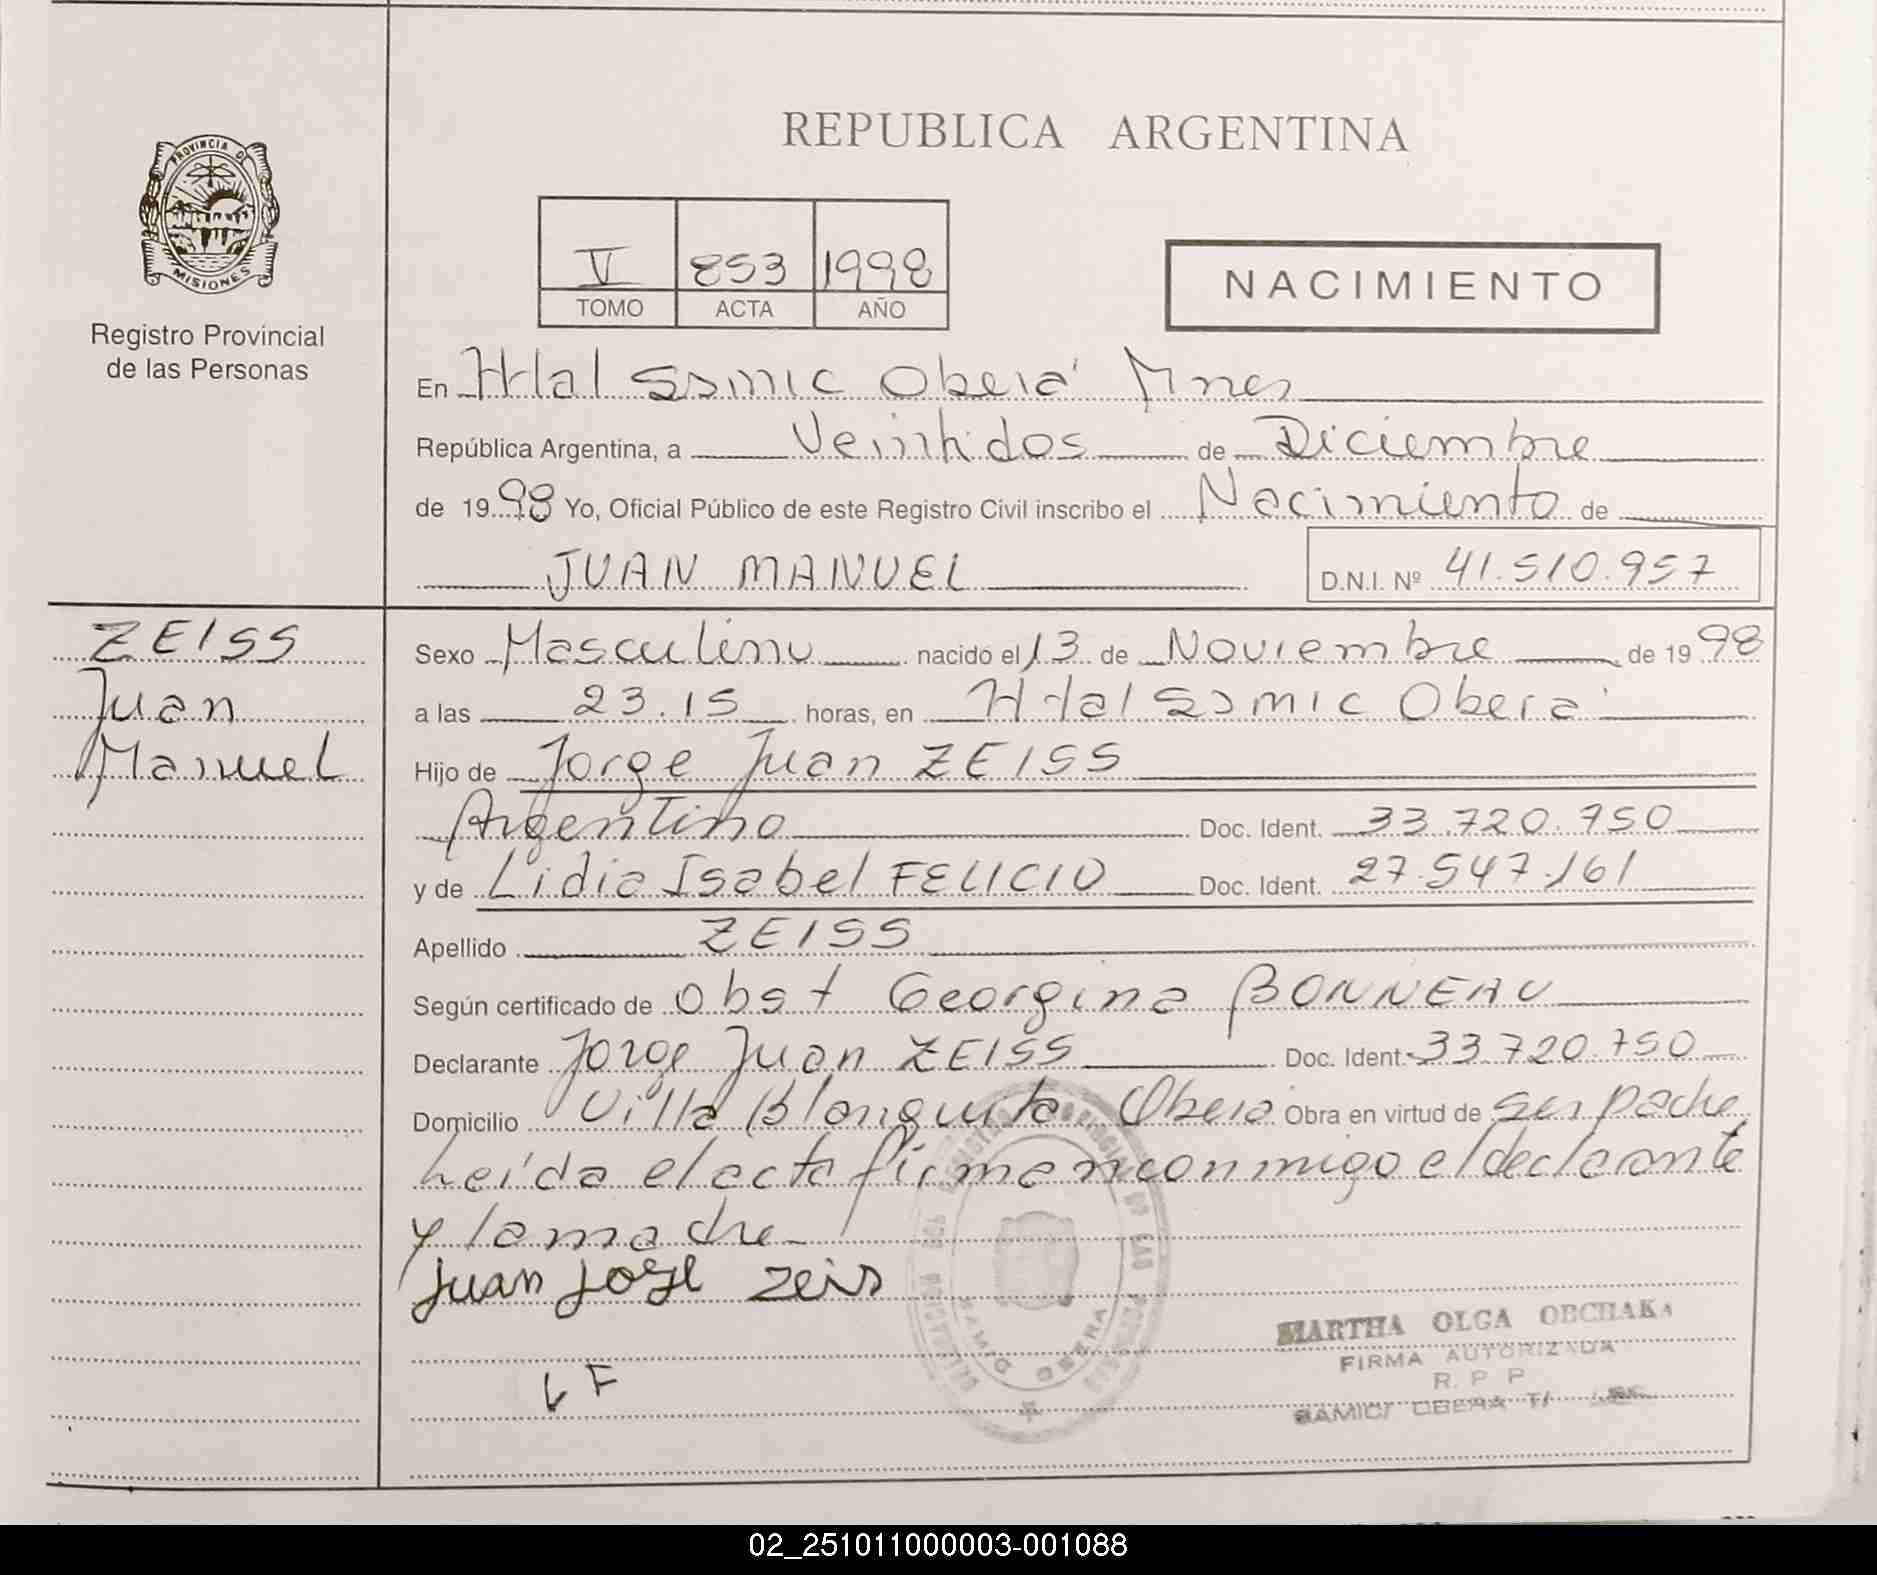 REPUBLICA ARGENTINA
PROVINCIA DE
MISIONES
Registro Provincial
de las Personas
V 853 1998
TOMO ACTA AÑO
NACIMIENTO
En Htal Samic Oberá Mnes
República Argentina, a Veintidos de Diciembre
de 1998 Yo, Oficial Público de este Registro Civil inscribo el Nacimiento de
JUAN MANUEL D.N.I. Nº 41.510.957
ZEISS
Juan
Manuel
Sexo Masculino nacido el 13 de Noviembre de 1998
a las 23.15 horas, en Htal Samic Oberá
Hijo de Jorge Juan ZEISS
Argentino Doc. Ident. 33.720.750
y de Lidia Isabel FELICIO Doc. Ident. 27.547.161
Apellido ZEISS
Según certificado de Obst Georgina BONNEAU
Declarante Jorge Juan ZEISS Doc. Ident. 33.720.750
Domicilio Villa Blanquita Oberá Obra en virtud de ser padre
Leída el acta firman conmigo el declarante
y la madre
Juan Jose Zeis
LF
MARTHA OLGA OBCHAKA
FIRMA AUTORIZADA
R. P. P
SAMIC/ OBERA
02_251011000003-001088